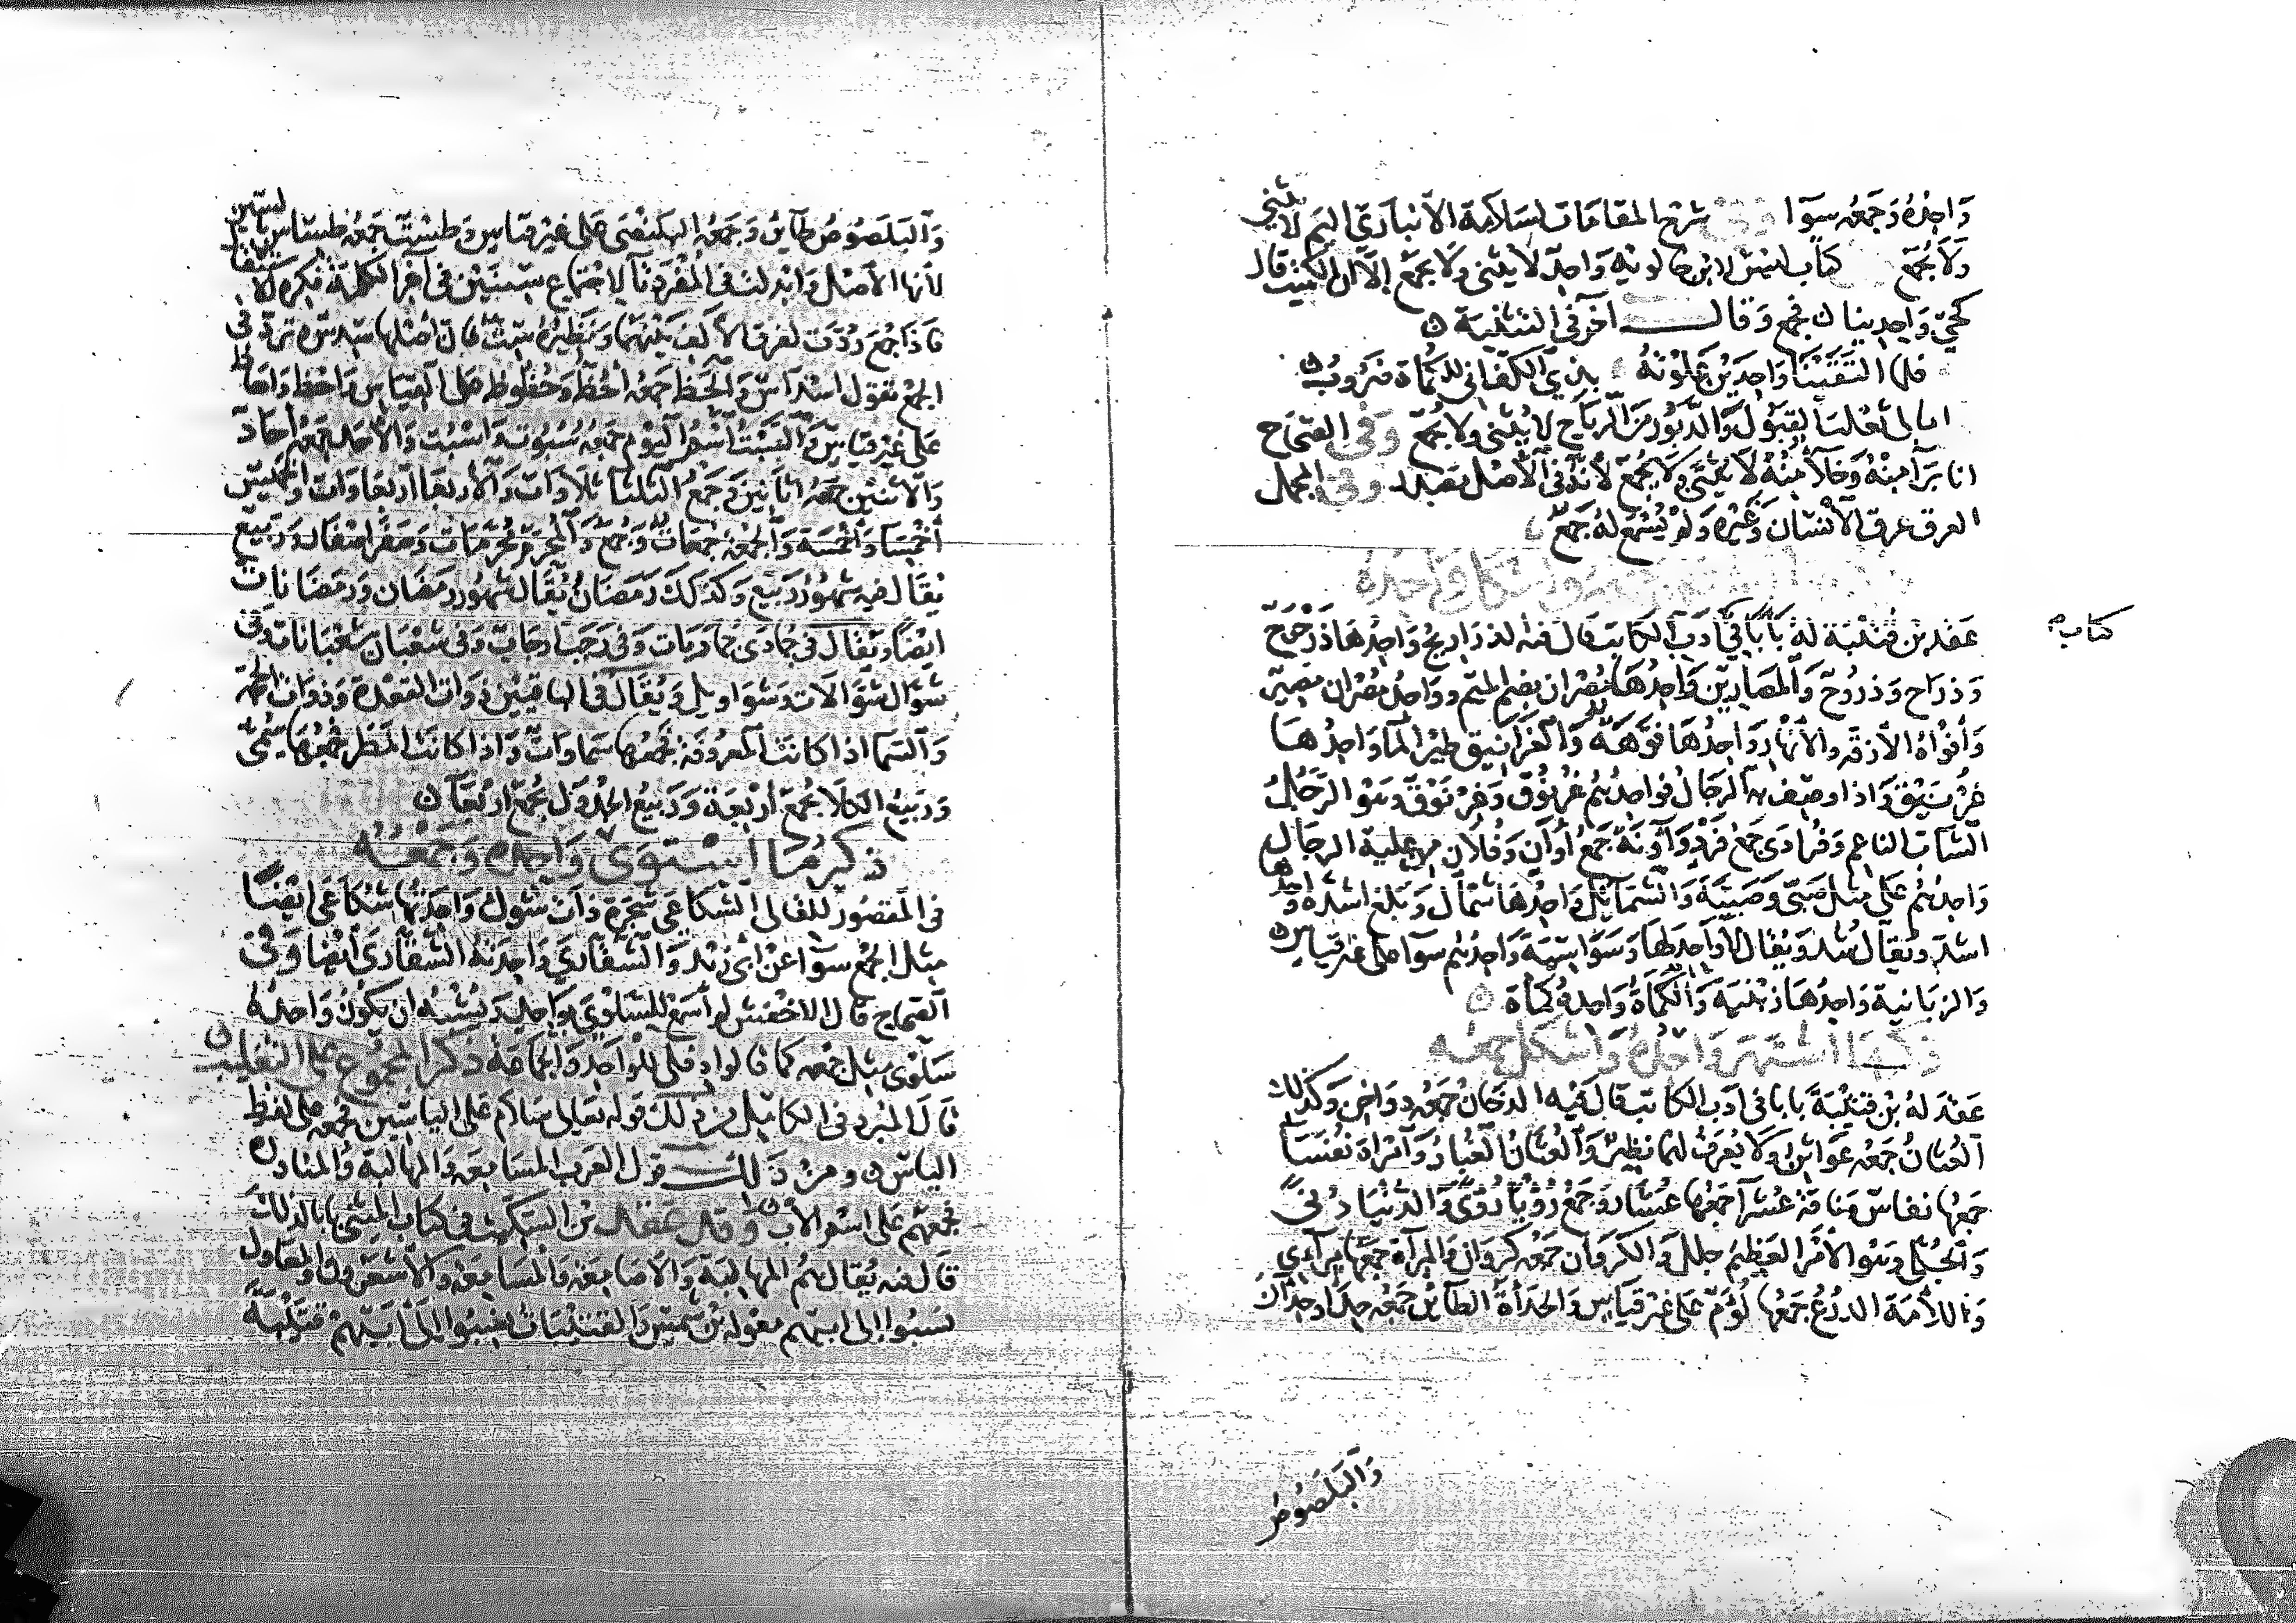 وَاحِدُهُ وَجَمْعُه سَوَا وفي شرح المقامات لسلامة الأنباري اليم لا يثنى
ولا يجمع كتاب ليس لابن خالويه واحد لا يثنى ولا يجمع إلا ان الكميت قال
كحي واحدينا ن فجمع وقال آخر في التثنية ن
فلما التقينا واحدين علوته بذي الكف اني للكماة ضروب ن
امالي ثعلب القبول والدبور من الرياح لا يثنى ولا يجمع وفي الصحاح
انا برآ منه وخلآ منه لا يثنى ولا يجمع لأنه في الأصل مصدر وفي المجمل
العرق عرق الانسان وغيره ولم يسمع له جمع
واحده
عقد بن قتيبة له بابا في ادب الكاتب قال فيه الذراريح واحدها ذرحرح
وذراح وذروح والمصارين واحدها مصران بضم الميم وواحد مصران مصير
وأفواه الأزقه والأنهار واحدها فوهه والغرانيق طير الما واحدها
غرنيق واذا وصف به الرجال فواحدهم غرنوق وغرنوق وهو الرجل
الشاب الناعم وفرادى جمع فرد وآونة جمع أوان وفلان من علية الرجال
واحدهم علي مثل صبي وصبية والشمائل واحدها شمال وبلغ اشده واحدها
اشد ويقال شد ويقال لا واحد لها وسواسية واحدهم سوا على غير قياس ن
والزبانية واحدها زبنية والكمأة واحده كمأة ن
ذكر ما اشتهر واحده واشكل جمعه
عقد له بن قتيبة بابا في ادب الكاتب قال فيه الدخان جمعه دواخن وكذلك
العثان جمعه عواثن ولا يعرف لهما نظير والعثان الغبار وامراة نفسا
جمعها نفاس وناقة عشرآ جمعها عشار وجمع رؤيا رؤى والدنيا دنى
والجلى وهو الأمر العظيم جلل والكروان جمعه كروان والمرآة جمعها مرآءي
واللأمة الدرع جمعها لؤم على غير قياس والحدأة الطائر جمعه حدا وحدان
والبلصوص
كتاب
والبلصوص طائر وجمعه البلنصى على غير قياس وطست جمعه طساس بالسين
لأنها الأصل وابدلت في المفرد تا لاجتماع سينين في آخر الكلمة فكره للاستثقال
فاذا جمع ردت لفرق الألف بينهما ونظيره ست فان أصلها سدس ترد في
الجمع تقول اسداس والحظ جمعه أحظ وحظوظ على القياس واحظ واحاظ
على غير قياس والسبت اسم اليوم جمعه سبوت واسبت والأحد جمعه أحاد
والاثنين جمعه اثانين وجمع الثلثا ثلاوات والأربعا أربعاوات والخميس
أخمسا وأخمسة والجمعة جمعات وجمع والمحرم محرمات وصفر اصفار وربيع
يقال فيه شهور ربيع وكذلك رمضان يقال شهور رمضان ورمضانات
ايضا ويقال في جمادى جماديات وفي رجب ارجاب وفي شعبان شعبانات وفي
شوال شوالات وشواويل ويقال في الباقيين ذوات القعدة وذوات الحجة
والسما اذا كانت المعروفة فجمعها سماوات واذا كانت المطر فجمعها سمي
وربيع الكلا يجمع أربعة وربيع الجدول يجمع اربعآ ن
ذكر ما استوى واحده وجمعه
في المقصور للقالي الشكاعي شجرة ذات شوك واحدتها شكاعى ايضا
مثل الجمع سوا عن ابي زيد والشقاري واحدته الشقارى ايضا وفي
الصحاح قال الاخفش لم أسمع للسلوى بواحد ويشبه ان يكون واحده
سلوى مثل جمعه كما قالوا دفلى للواحد والجماعة ذكر المجموع على التغليب ن
قال المبرد في الكامل من ذلك قوله تعالى سلام على الياسين فجمعه على لفظ
الياس ن ومن ذلك قول العرب المسامعه والمهالبة والمناذره
فجمعهم على اسم الأب وقد عقد بن السكيت في كتاب المثنى بابا لذلك
قال فيه يقال هم المهالبة والاصامعة والمسامعة والأشعرون والمعاول
نسبوا إلى ابيهم معولة بن شمس والقتيبات نسبوا إلى أبيهم قتيبة